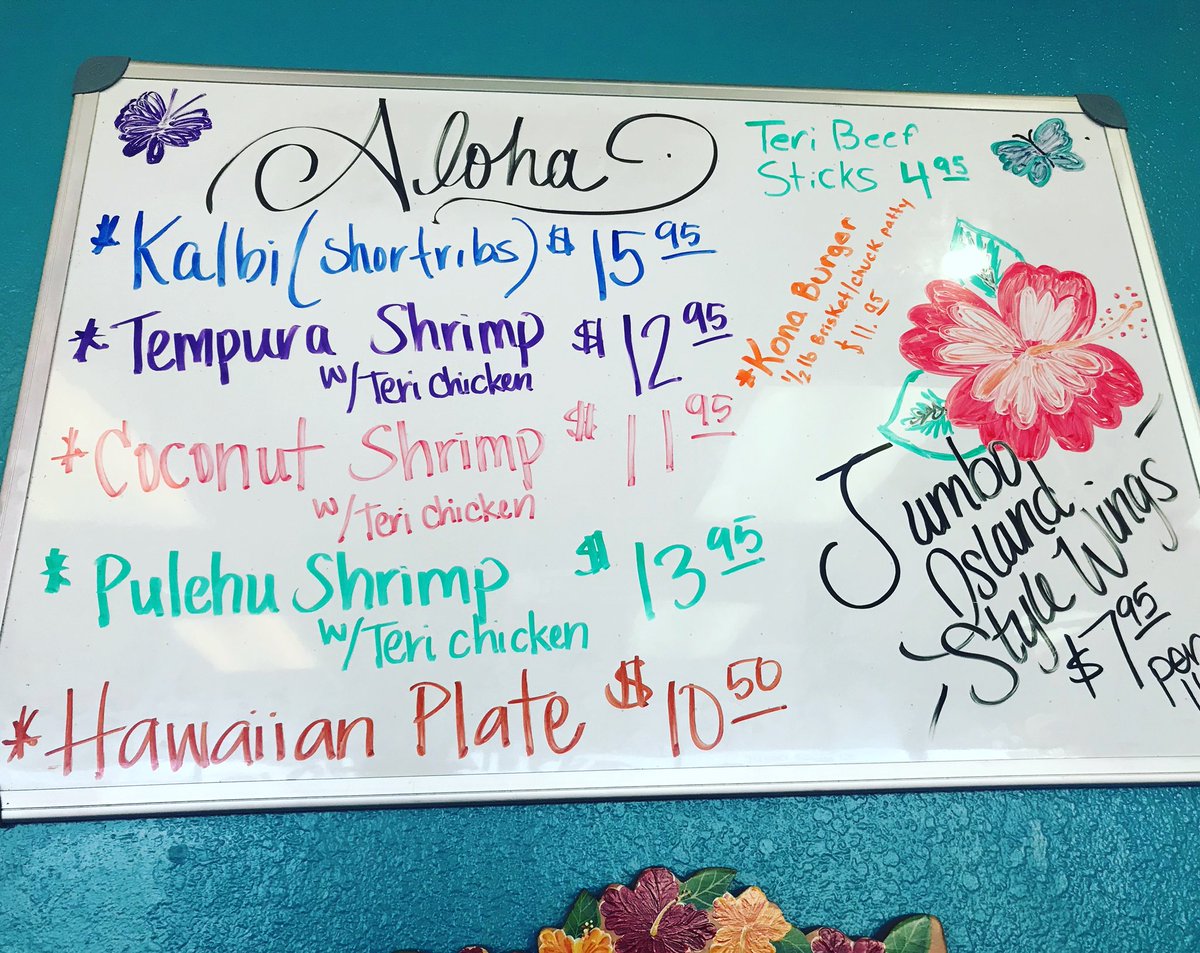 Aloha
* Kalbi (shortribs) $ 15 95
* Tempura Shrimp $ 12 95
w/ Teri chicken
* Coconut Shrimp $ 11 95
w/ Teri chicken
* Pulehu Shrimp $ 13 95
w/ Teri chicken
* Hawaiian Plate $ 10 50
Teri Beef
Sticks 4 95
* Kona Burger
1/2 lb Brisket/chuck patty
$ 11. 95
Jumbo
Island
Style Wings
$ 7 95
per